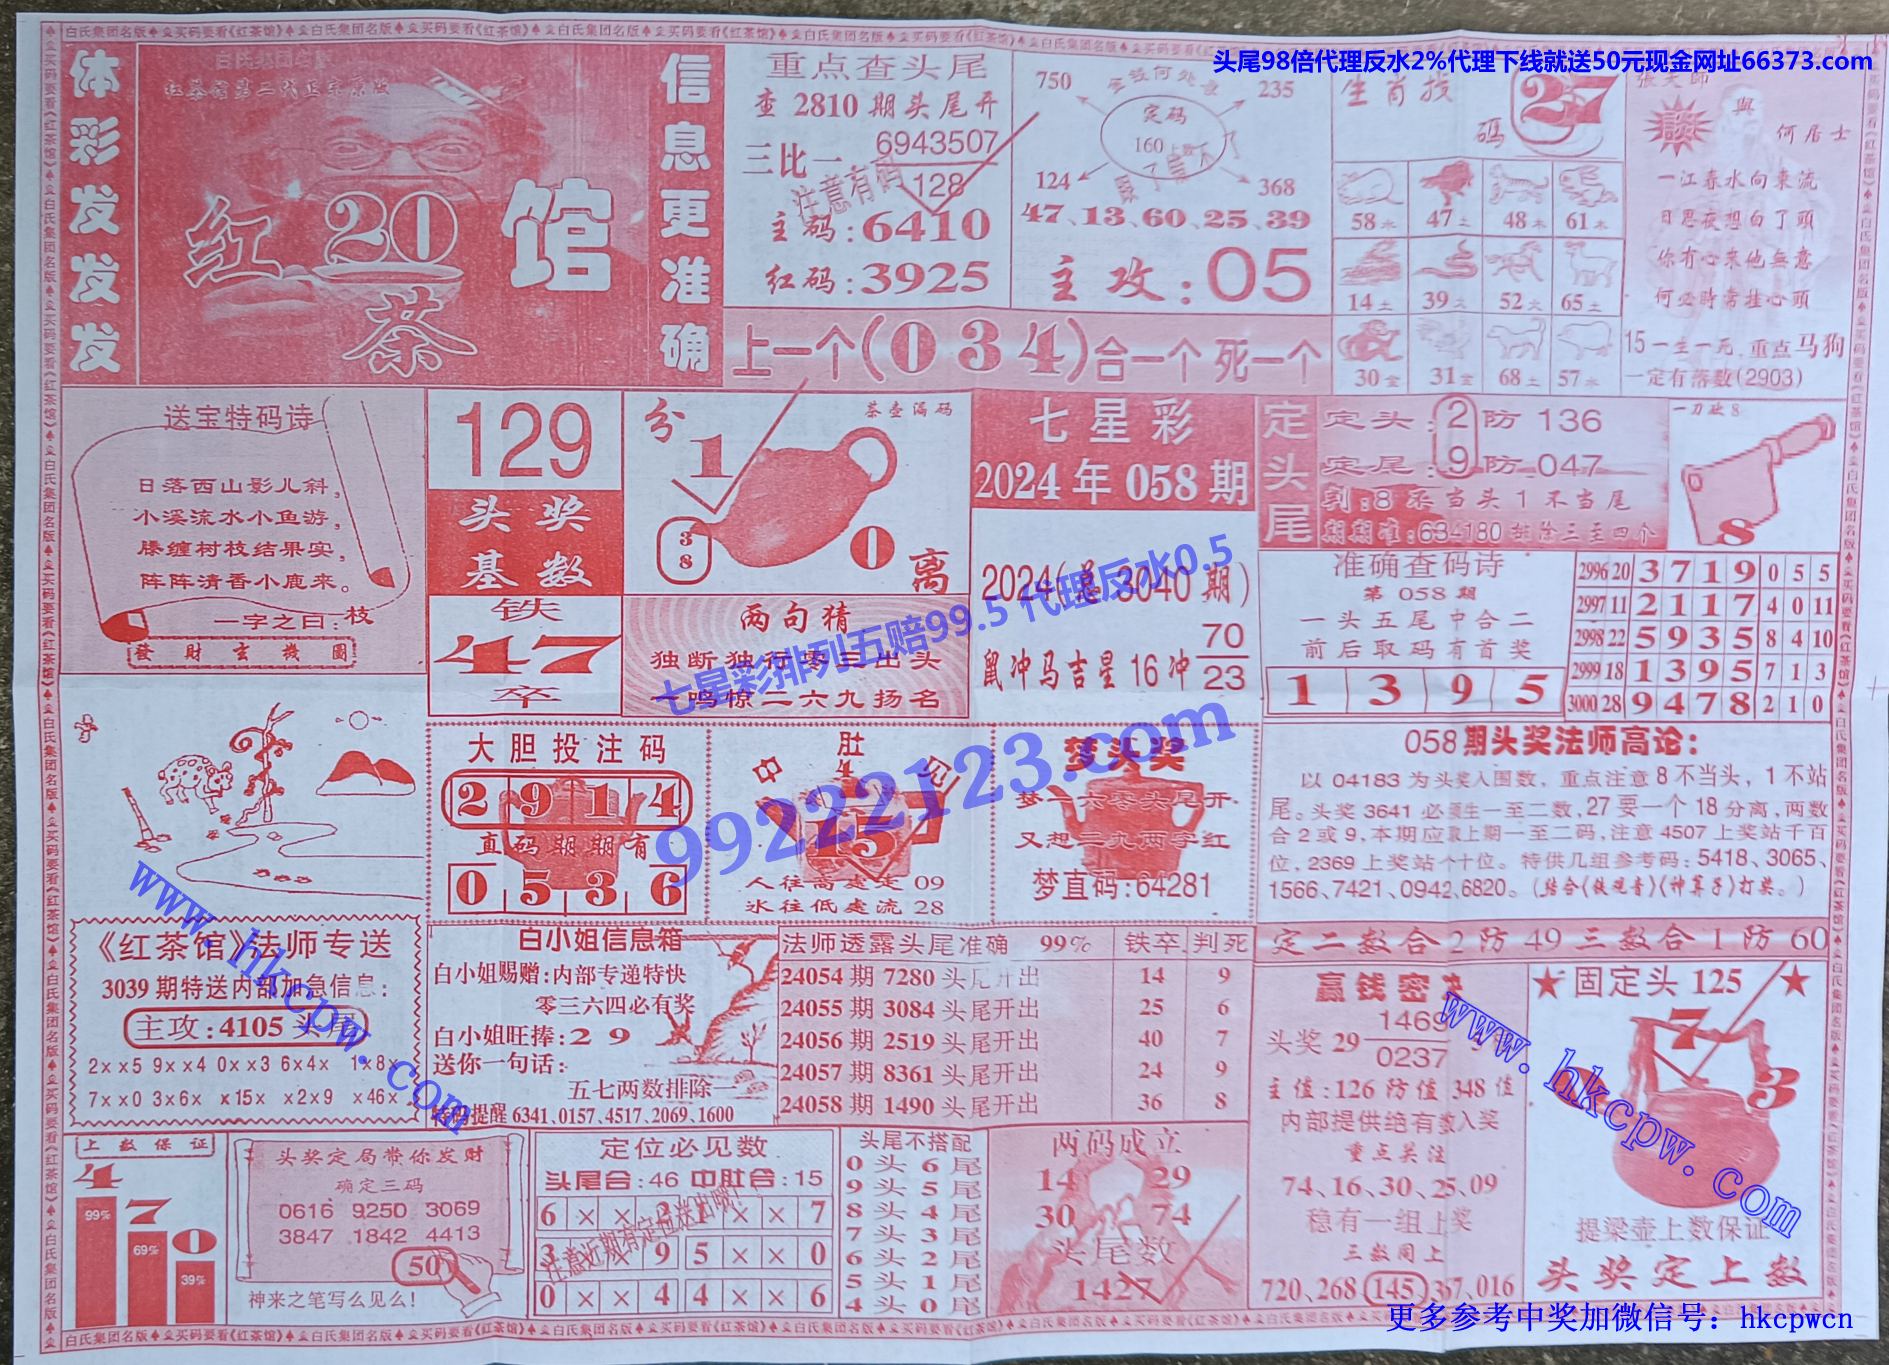 头尾98倍代理反水2%代理下线就送50元现金网址66373.com
体彩发发发
信息更准确
红茶馆第二代正宗原版
红 20 馆
茶
重点查头尾
查 2810 期头尾开
三比一 6943507
128
注意有码
主码:6410
红码:3925
750 235
定码
160
124 368
47、13、60、25、39
主攻:05
上一个(034)合一个 死一个
生肖找码 27
58水 47土 48木 61木
14土 39火 52火 65土
30金 31金 68土 57水
張天師
談 與
何居士
一江春水向東流
日思夜想白了頭
你有心來他無意
何必時常挂心頭
15一生一死,重点马狗
一定有落数(2903)
送宝特码诗
日落西山影儿斜,
小溪流水小鱼游,
滕缠树枝结果实,
阵阵清香小鹿来。
一字之曰:枝
發財玄機圖
129
头奖
基数
铁
47
卒
分
茶壶漏码
1
38
0
离
两句猜
独断独行零三出头
一鸣惊二六九扬名
七星彩
2024年058期
2024(总3040期)
鼠冲马吉星16冲 70
23
定头尾
定头:2防136
定尾:9防047
判:8不当头1不当尾
期期准:634180排除三至四个
一刀砍8
8
准确查码诗
第058期
一头五尾中合二
前后取码有首奖
1 3 9 5
2996 20 3 7 1 9 0 5 5
2997 11 2 1 1 7 4 0 11
2998 22 5 9 3 5 8 4 10
2999 18 1 3 9 5 7 1 3
3000 28 9 4 7 8 2 1 0
七星彩排列五赔99.5 代理反水0.5
99222123.com
大胆投注码
2 9 1 4
直码期期有
0 5 3 6
中肚见
4
15
人往高处走 09
水往低处流 28
梦头奖
梦一六零头尾开
又想二九两字红
梦直码:64281
058期头奖法师高论:
以04183为头奖入围数,重点注意8不当头,1不站
尾。头奖3641必须生一至二数,27要一个18分离,两数
合2或9,本期应取上期一至二码,注意4507上奖站千百
位,2369上奖站个十位。特供几组参考码:5418、3065、
1566、7421、0942、6820。(结合《铁观音》《神算子》打奖。)
www.hkcpw.com
《红茶馆》法师专送
3039期特送内部加急信息:
主攻:4105头尾
2××5 9××4 0××3 6×4× 1×8×
7××0 3×6× ×15× ×2×9 ×46×
白小姐信息箱
白小姐赐赠:内部专递特快
零三六四必有奖
白小姐旺捧:2 9
送你一句话:
五七两数排除一
特码提醒6341、0157、4517、2069、1600
法师透露头尾准确 99% 铁卒 判死
24054期7280头尾开出 14 9
24055期3084头尾开出 25 6
24056期2519头尾开出 40 7
24057期8361头尾开出 24 9
24058期1490头尾开出 36 8
定二数合2防49三数合1防60
赢钱密诀
头奖29 1469
0237
主值:126防值348值
内部提供绝有数入奖
重点关注
74、16、30、25、09
稳有一组上奖
三数同上
720、268 145 367、016
★固定头125★
7
3
提梁壶上数保证
头奖定上数
www.hkcpw.com
上数保证
4 7 0
99% 69% 39%
头奖定局带你发财
确定三码
0616 9250 3069
3847 1842 4413
50
神来之笔写么见么!
定位必见数
头尾合:46 中肚合:15
6 × × 2 1 × × 7
3 × × 9 5 × × 0
0 × × 4 4 × × 6
注意近期有定位送出哦!
头尾不搭配
0头6尾
9头5尾
8头4尾
7头3尾
6头2尾
5头1尾
4头0尾
两码成立
14 29
30 74
头尾数
1427
更多参考中奖加微信号:hkcpwcn
白氏集团名版♠买码要看《红茶馆》